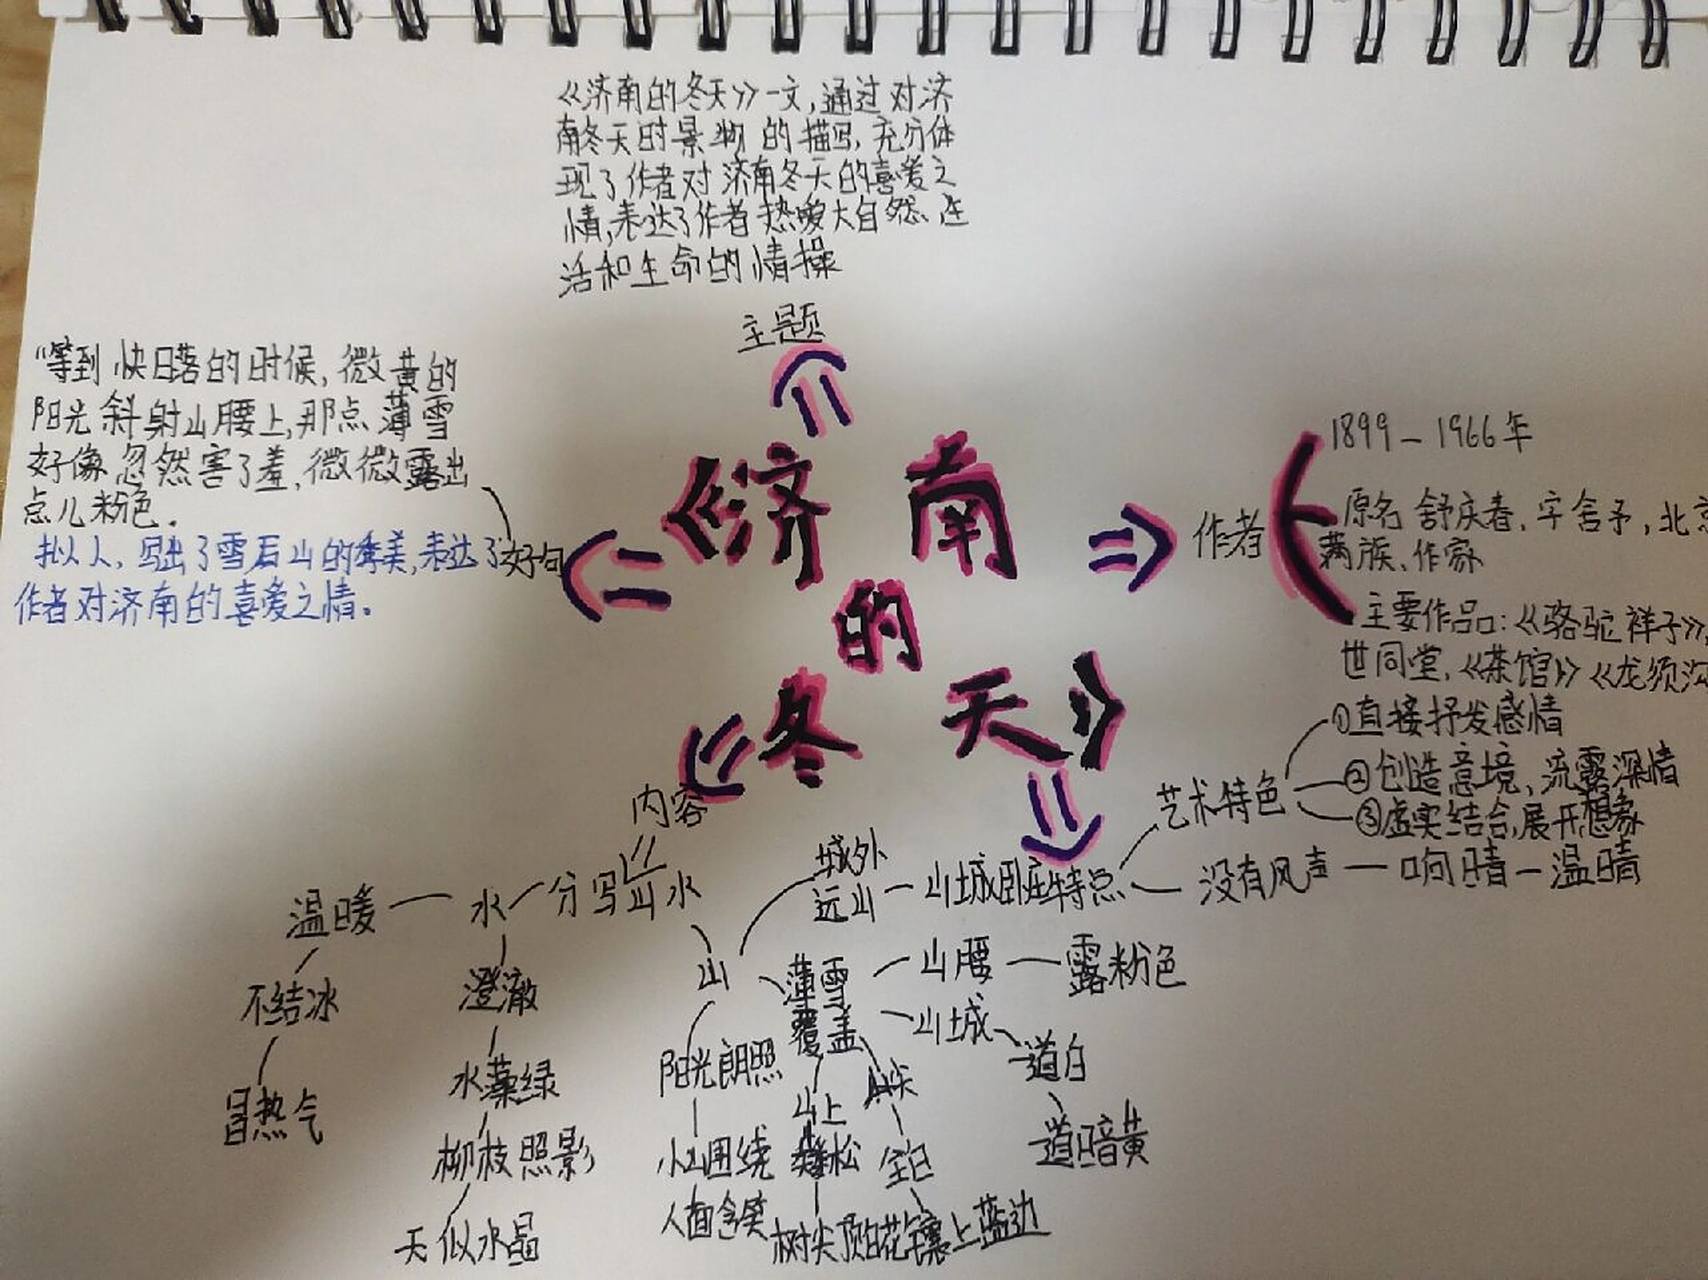 《济南的冬天》一文,通过对济
南冬天时景物的描写,充分体
现了作者对济南冬天的喜爱之
情,表达了作者热爱大自然、生
活和生命的情操
主题
"等到快日落的时候,微黄的
阳光斜射山腰上,那点薄雪
好像忽然害了羞,微微露出
点儿粉色。
拟人,写出了雪后山的秀美,表达了
作者对济南的喜爱之情。
好句
《济南
的
冬天》
作者
1899-1966年
原名舒庆春,字舍予,北京
满族,作家
主要作品:《骆驼祥子》,
世同堂,《茶馆》《龙须沟
艺术特色
①直接抒发感情
②创造意境,流露深情
③虚实结合,展开想象
特点
没有风声—响晴—温晴
内容
分写山水
水
温暖
不结冰
冒热气
澄澈
水藻绿
柳枝照影
天似水晶
山
城外
远山—山城卧
阳光朗照
小山围绕
人面含笑
薄雪
覆盖
山腰—露粉色
山城
道白
道暗黄
山上
矮松
树尖顶白花
山尖
全白
镶上蓝边